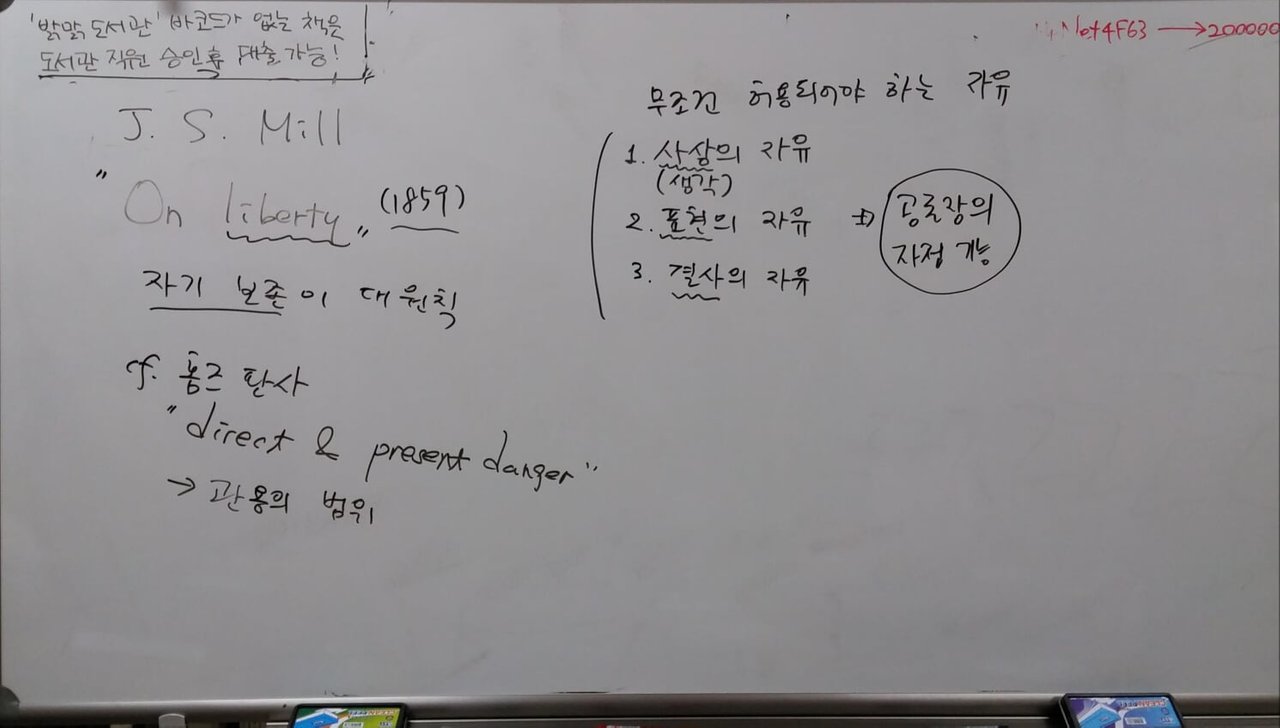 '밝맑도서관' 바코드가 없는 책은
도서관 직원 승인후 대출가능!
J. S. Mill
"On liberty" (1859)
자기 보존이 대원칙
cf. 홈즈 판사
"direct & present danger"
→ 관용의 범위
무조건 허용되어야 하는 자유
1. 사상의 자유
(생각)
2. 표현의 자유 ⇒ 공론장의
자정 기능
3. 결사의 자유
Net4F63 → 200000